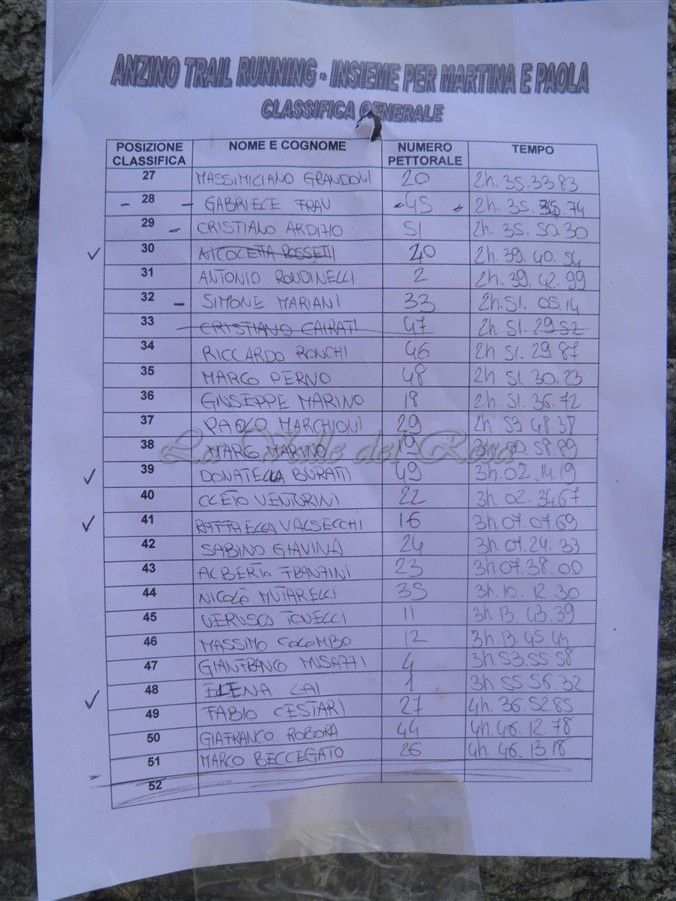 ANZINO TRAIL RUNNING - INSIEME PER MARTINA E PAOLA
CLASSIFICA GENERALE
POSIZIONE CLASSIFICA NOME E COGNOME NUMERO PETTORALE TEMPO
27 MASSIMILIANO GRANDONI 20 2h. 35.33 83
28 GABRIELE FRAU 45 2h. 35. 74
29 CRISTIANO 51 2h. 35. 50. 30
30 NICOLETTA ROSSETTI 2h. 39. 40. 54
31 ANTONIO RONDINELLI 2 2h. 39. 42. 99
32 SIMONE MARIANI 33 2h. 51. 05.14
33 CRISTIANO CAIRATI 47 2h. 51. 29 52
34 RICCARDO RONCHI 46 2h 51. 29. 87
35 MARCO PERNO 48 2h 51. 30. 23
36 GIUSEPPE MARINO 18 2h. 51. 36. 72
37 PAOLO MARCHIONI 29 2h 53 48.38
38 MARCO MARINO 19 3h.
La Valle del Rosa
39 DONATELLA BURATI 49 3h. 02. 14.19
40 CLETO VENTURINI 22 3h. 02. 34.67
41 RAFFAELLA VALSECCHI 16 3h. 07. 07. 69
42 SABINO GIAVINA 24 3h. 07. 24. 33
43 ALBERTO FRANZINI 23 3h 07. 38. 00
44 NICOLÒ MUTARELLI 35 3h. 12. 30
45 TONELLI 11 3h. 13. 43. 39
46 MASSIMO COLOMBO 12 3h. 13. 45 44
47 GIANFRANCO MUSAZZI 4 3h. 53. 55 58
48 ELENA CAI 1 3h 55 56. 32
49 FABIO CESTARI 27 4h. 36. 52 85
50 GIAFRANCO ROBORA 44 4h. 46. 12. 78
51 MARCO BECCEGATO 26 4h. 46. 13 18
52